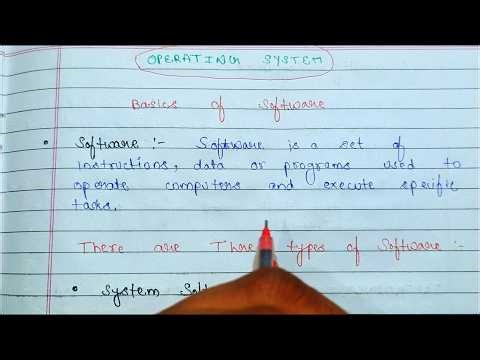 OPERATING SYSTEM
Basics of Software
• Software :- Software is a set of
instructions, data or programs used to
operate computers and execute specific
tasks.
There are Three types of Software :-
• System